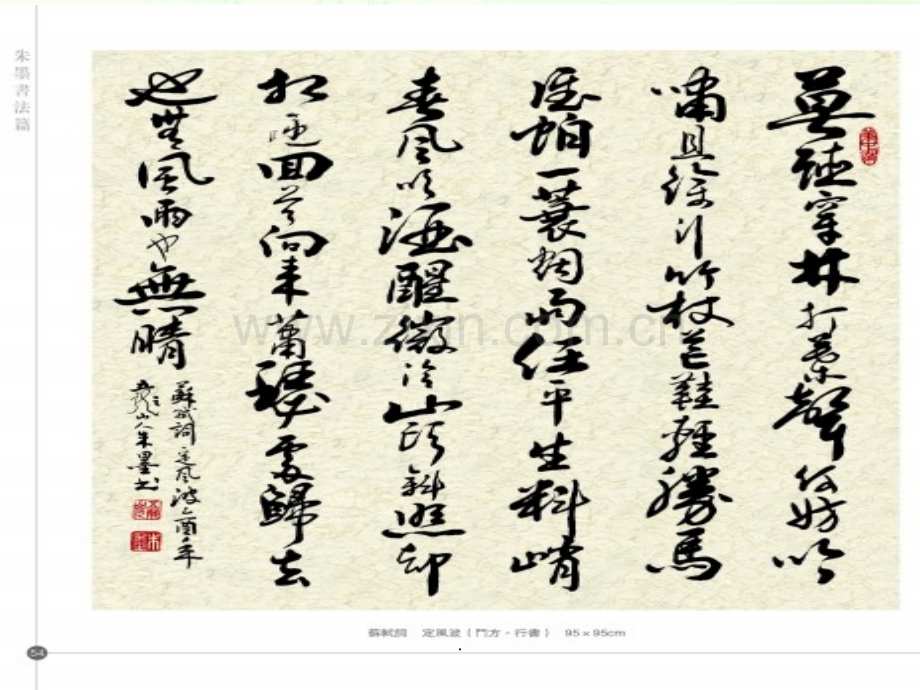 朱墨書法篇
莫聽穿林打葉聲何妨吟
嘯且徐行竹杖芒鞋輕勝馬
誰怕一蓑烟雨任平生料峭
春風吹酒醒微冷山頭斜照却
相迎回首向來蕭瑟處歸去
也無風雨也無晴
蘇軾詞定風波乙酉年
山人朱墨书
www.zixin.com.cn
蘇軾詞 定風波（鬥方·行書） 95×95cm
54